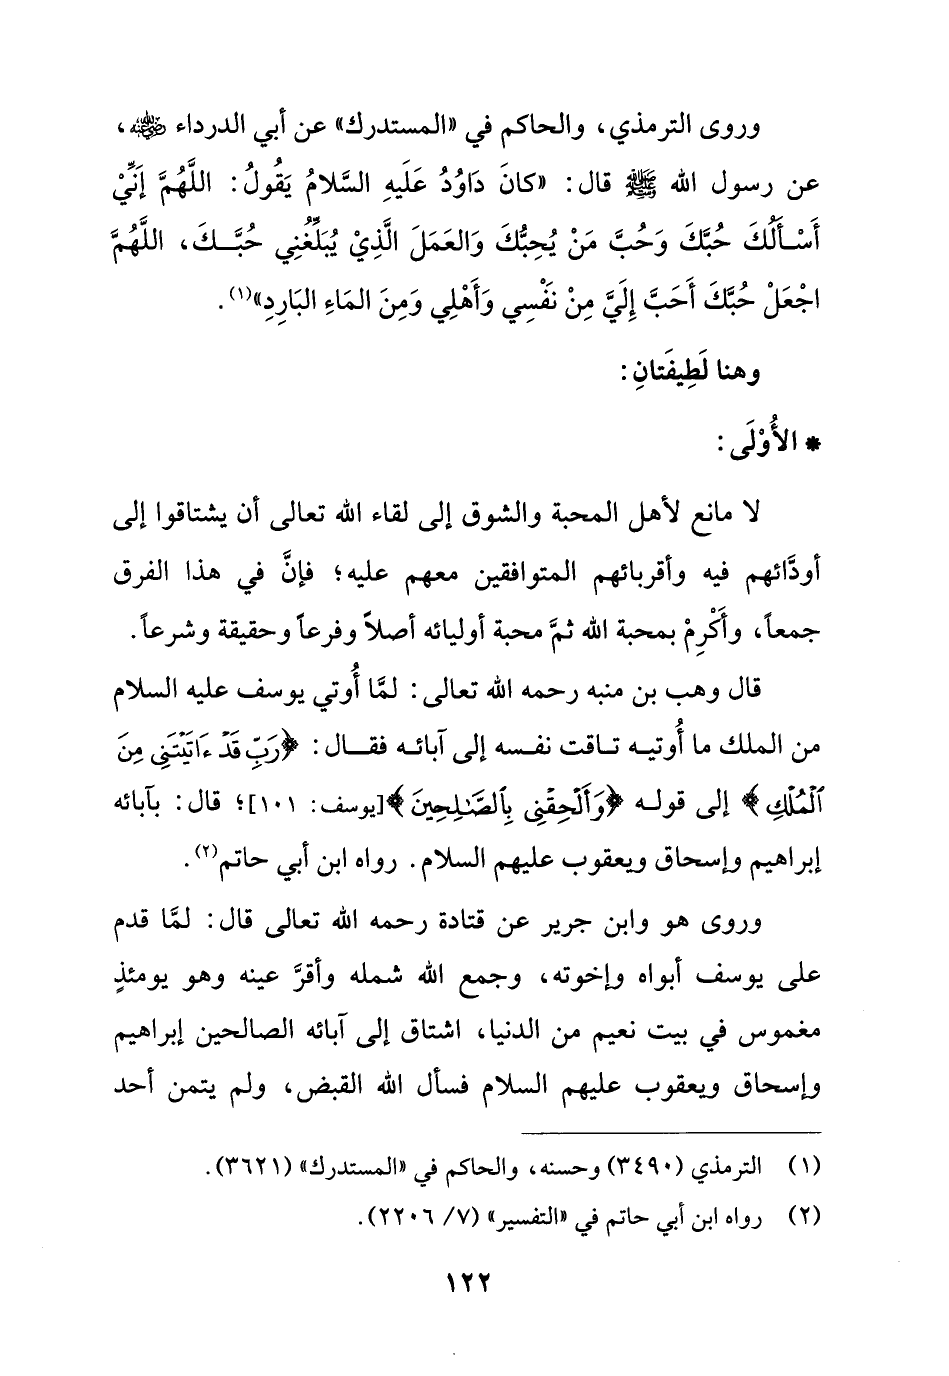 وروى الترمذي، والحاكم في «المستدرك» عن أبي الدرداء رضي الله عنه،
عن رسول الله ﷺ قال: «كانَ دَاوُدُ عَلَيهِ السَّلامُ يَقُولُ: اللَّهُمَّ إِنِّيْ
أَسْأَلُكَ حُبَّكَ وَحُبَّ مَنْ يُحِبُّكَ وَالعَمَلَ الَّذِيْ يُبَلِّغُنِي حُبَّكَ، اللَّهُمَّ
اجْعَلْ حُبَّكَ أَحَبَّ إِلَيَّ مِنْ نَفْسِي وَأَهْلِي وَمِنَ المَاءِ البَارِدِ»(١).
وهنا لَطِيفَتانِ:
* الأُوْلَى:
لا مانع لأهل المحبة والشوق إلى لقاء الله تعالى أن يشتاقوا إلى
أودَّائهم فيه وأقربائهم المتوافقين معهم عليه؛ فإنَّ في هذا الفرق
جمعاً، وأَكْرِمْ بمحبة الله ثمَّ محبة أوليائه أصلاً وفرعاً وحقيقة وشرعاً.
قال وهب بن منبه رحمه الله تعالى: لمَّا أُوتي يوسف عليه السلام
من الملك ما أُوتيه تاقت نفسه إلى آبائه فقال: ﴿رَبِّ قَدْ ءَاتَيْتَنِى مِنَ
ٱلْمُلْكِ﴾ إلى قوله ﴿وَأَلْحِقْنِى بِٱلصَّٰلِحِينَ﴾[يوسف: ١٠١]؛ قال: بآبائه
إبراهيم وإسحاق ويعقوب عليهم السلام. رواه ابن أبي حاتم(٢).
وروى هو وابن جرير عن قتادة رحمه الله تعالى قال: لمَّا قدم
على يوسف أبواه وإخوته، وجمع الله شمله وأقرَّ عينه وهو يومئذٍ
مغموس في بيت نعيم من الدنيا، اشتاق إلى آبائه الصالحين إبراهيم
وإسحاق ويعقوب عليهم السلام فسأل الله القبض، ولم يتمن أحد
(١) الترمذي (٣٤٩٠) وحسنه، والحاكم في «المستدرك» (٣٦٢١).
(٢) رواه ابن أبي حاتم في «التفسير» (٧/ ٢٢٠٦).
١٢٢